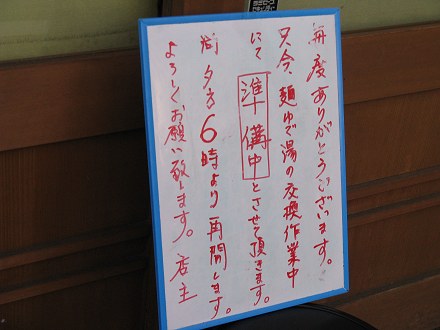 毎度ありがとうございます。
只今、麺ゆで湯の交換作業中
にて準備中とさせて頂きます。
尚夕方6時より再開します。
よろしくお願い致します。店主